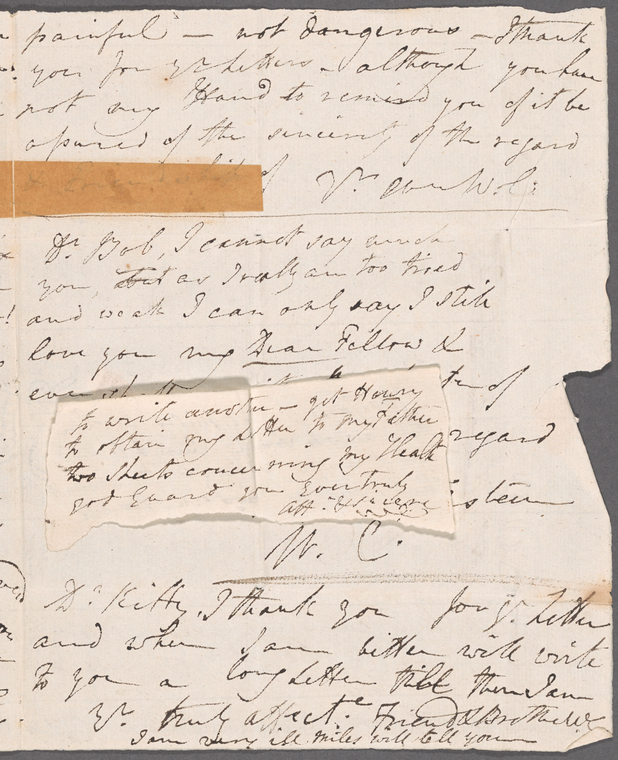 painful — not dangerous — I thank
you for yr Letters — although you have
not my Hand to remind you of it be
assured of the sincerity of the regard
of Yr own
Dr. Bob, I cannot say much
you, but as I really am too tired
and weak I can only say I still
love you my Dear Fellow &
of
to write another — get Henry
to obtain my Letter to my Father
two Sheets concerning my Health
god Guard you Ever truly
afft & sincere
regard
W. C.
Dr Kitty, I thank you for yr Letter
and when I am better will write
to you a long Letter till then I am
Yr truly affect.e Friend & Brother WC
I am very ill Miles will tell you